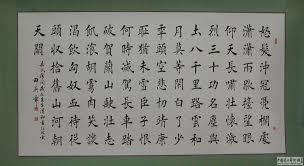 怒髮沖冠憑欄處
瀟瀟雨歇抬望眼
仰天長嘯壯懷激
烈三十功名塵與
土八千里路雲和
月莫等閒白了少
年頭空悲切靖康
恥猶未雪臣子恨
何時滅駕長車踏
破賀蘭山缺壯志
飢餐胡虜肉笑談
渴飲匈奴血待從
頭收拾舊山河朝
天闕